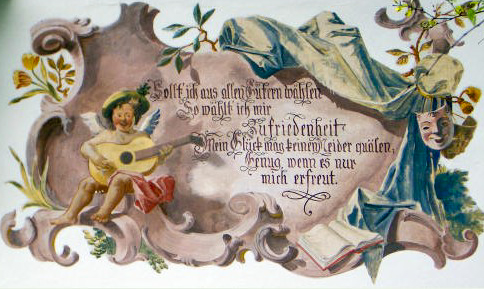 Sollt' ich aus allen Gütern wählen
So wählt ich mir
Zufriedenheit
Mein Glück mag keinen Neider quälen,
Genug, wenn es nur
mich erfreut.